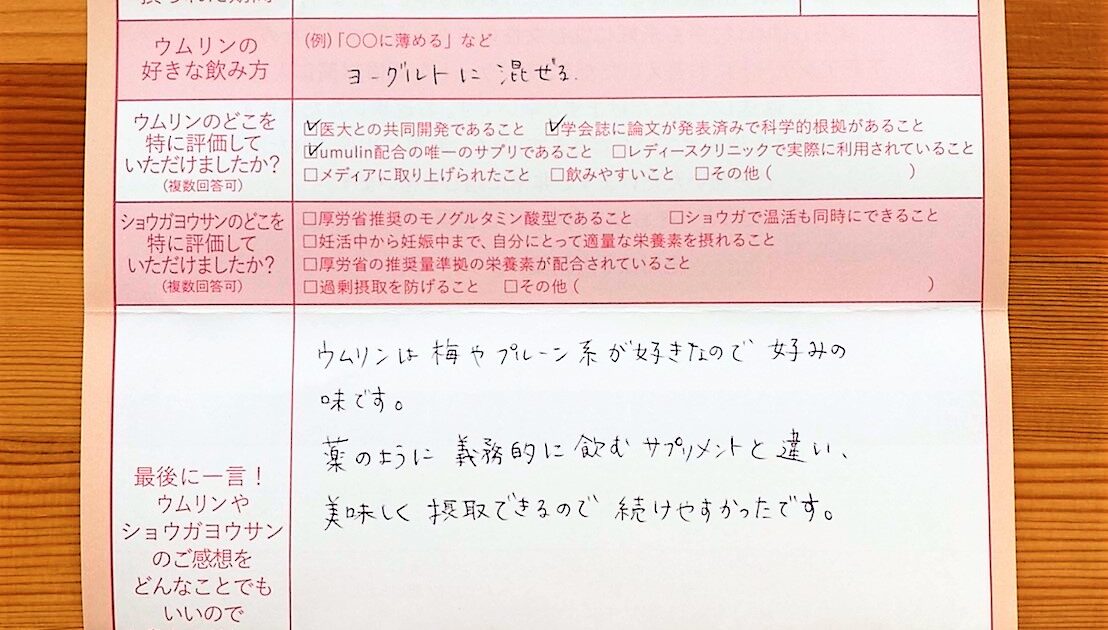 ウムリンの
好きな飲み方
(例)「○○に薄める」など
ヨーグルトに混ぜる.
ウムリンのどこを
特に評価して
いただけましたか?
(複数回答可)
☑医大との共同開発であること ☑学会誌に論文が発表済みで科学的根拠があること
☑umulin配合の唯一のサプリであること □レディースクリニックで実際に利用されていること
□メディアに取り上げられたこと □飲みやすいこと □その他( )
ショウガヨウサンのどこを
特に評価して
いただけましたか?
(複数回答可)
□厚労省推奨のモノグルタミン酸型であること □ショウガで温活も同時にできること
□妊活中から妊娠中まで、自分にとって適量な栄養素を摂れること
□厚労省の推奨量準拠の栄養素が配合されていること
□過剰摂取を防げること □その他( )
最後に一言!
ウムリンや
ショウガヨウサン
のご感想を
どんなことでも
いいので
ウムリンは梅やプルーン系が好きなので好みの
味です。
薬のように義務的に飲むサプリメントと違い、
美味しく摂取できるので続けやすかったです。